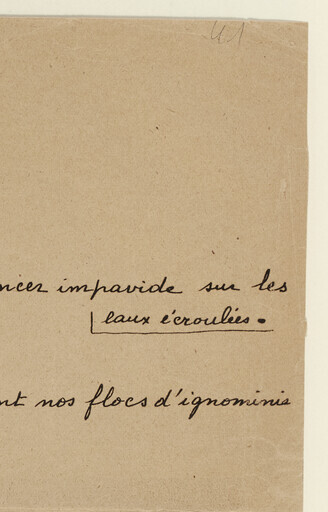 41
ncer impavide sur les
eaux écroulées.
nt nos flocs d'ignominie